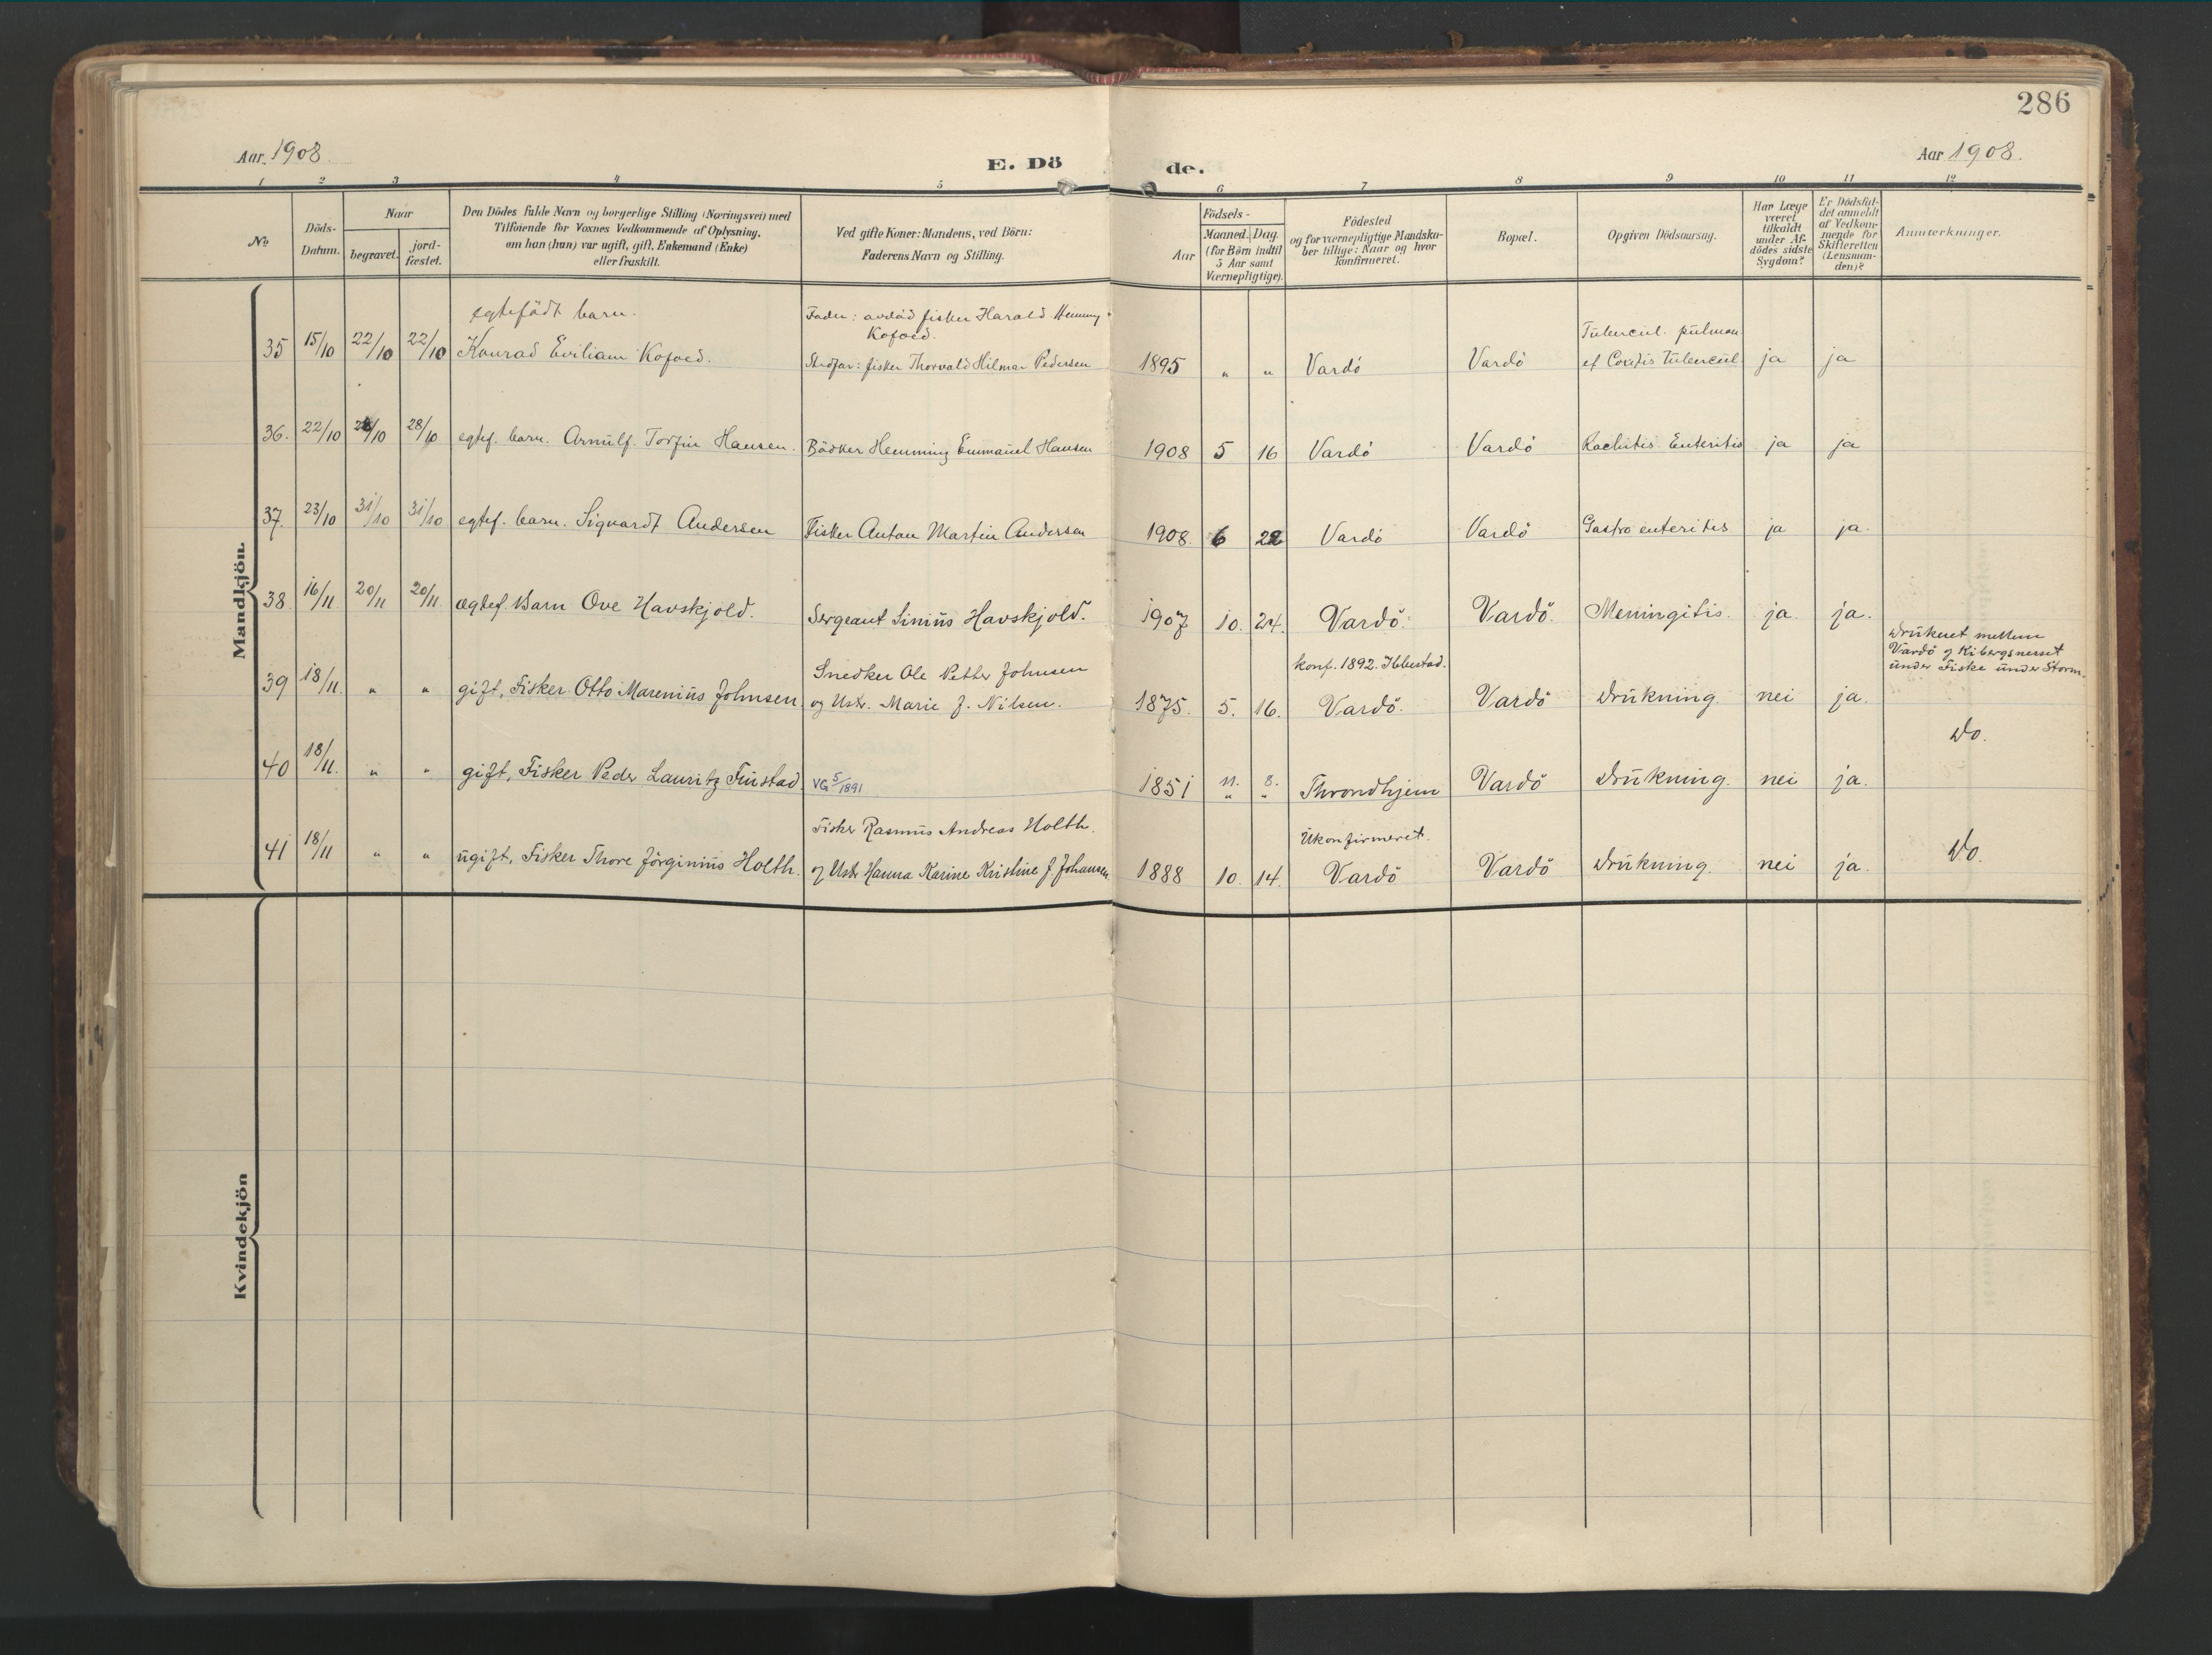 286
Aar 1908.
E. Dö
de.
Aar 1908.
1 2 3 4 5 6 7 8 9 10 11 12
No
Döds-
Datum.
Naar
begravet.
jord-
fæstet.
Den Dödes fulde Navn og borgerlige Stilling (Næringsvei) med
Tilföiende for Voxnes Vedkommende af Oplysning,
om han (hun) var ugift, gift, Enkemand (Enke)
eller fraskilt.
Ved gifte Koner: Mandens, ved Börn:
Faderens Navn og Stilling.
Födsels-
Aar
Maaned. Dag.
(for Börn indtil
5 Aar samt
Værnepligtige).
Födested
og for værnepligtige Mandska-
ber tillige: Naar og hvor
konfirmeret.
Bopæl.
Opgiven Dödsaarsag.
Har Læge
været
tilkaldt
under Af-
dödes sidste
Sygdom?
Er Dödsfal-
det anmeldt
af Vedkom-
mende for
Skifteretten
(Lensman-
den)?
Anmærkninger.
Mandkjön.
egtefödt barn.
Fader: avdöd fisker Harald Henning
Kofoed.
Tubercul. pulmon.
35 15/10 22/10 22/10 Konrad Eviliam Kofoed. Stedfar: fisker Thorvald Hilmar Pedersen 1895 " " Vardö Vardö et Coxitis tubercul. ja ja
36. 22/10 28/10 28/10 egtef. barn. Arnulf Torfin Hansen. Bödker Hemming Emmanuel Hansen 1908 5 16 Vardö Vardö Rachitis Enteritis ja ja
37. 23/10 31/10 31/10 egtef. barn. Sigvardt Andersen Fisker Anton Martin Andersen 1908. 6 22 Vardö Vardö Gastro enteritis ja ja.
38. 16/11. 20/11 20/11. ægtef. Barn Ove Havskjold. Sergeant Sinius Havskjold. 1907 10. 24. Vardö. Vardö. Meningitis. ja. ja.
Druknet mellem
Vardö og Kibergsnesset
under Fiske under Storm.
Snedker Ole Petter Johnsen
konf. 1892. Ibbestad.
39 18/11. " " gift, Fisker Otto Marenius Johnsen og Ustr. Marie J. Nilsen. 1875. 5. 16. Vardö. Vardö Drukning. nei ja.
Do.
40 18/11. " " gift, Fisker Peder Lauritz Finstad. VG 5/1891 1851 11. 8. Throndhjem Vardö Drukning. nei ja.
Fisker Rasmus Andreas Holth.
Ukonfirmeret.
Do.
41 18/11 " " ugift, Fisker Thore Jörginius Holth. og Ustr Hanna Karine Kristine J. Johansen 1888 10. 14. Vardö Vardö Drukning. nei ja.
Kvindekjön